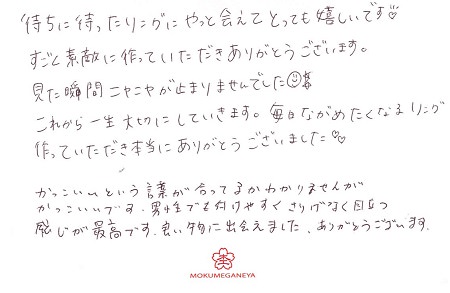 待ちに待ったリングにやっと会えてとっても嬉しいです♡
すごく素敵に作っていただきありがとうございます。
見た瞬間ニヤニヤが止まりませんでした☺
これから一生大切にしていきます。毎日ながめたくなるリング
作っていただき本当にありがとうございました♡♡
かっこいいという言葉が合ってるかわかりませんが
かっこいいです。男性でも付けやすくさりげなく目立つ
感じが最高です。良い物に出会えました、ありがとうございます。
MOKUMEGANEYA